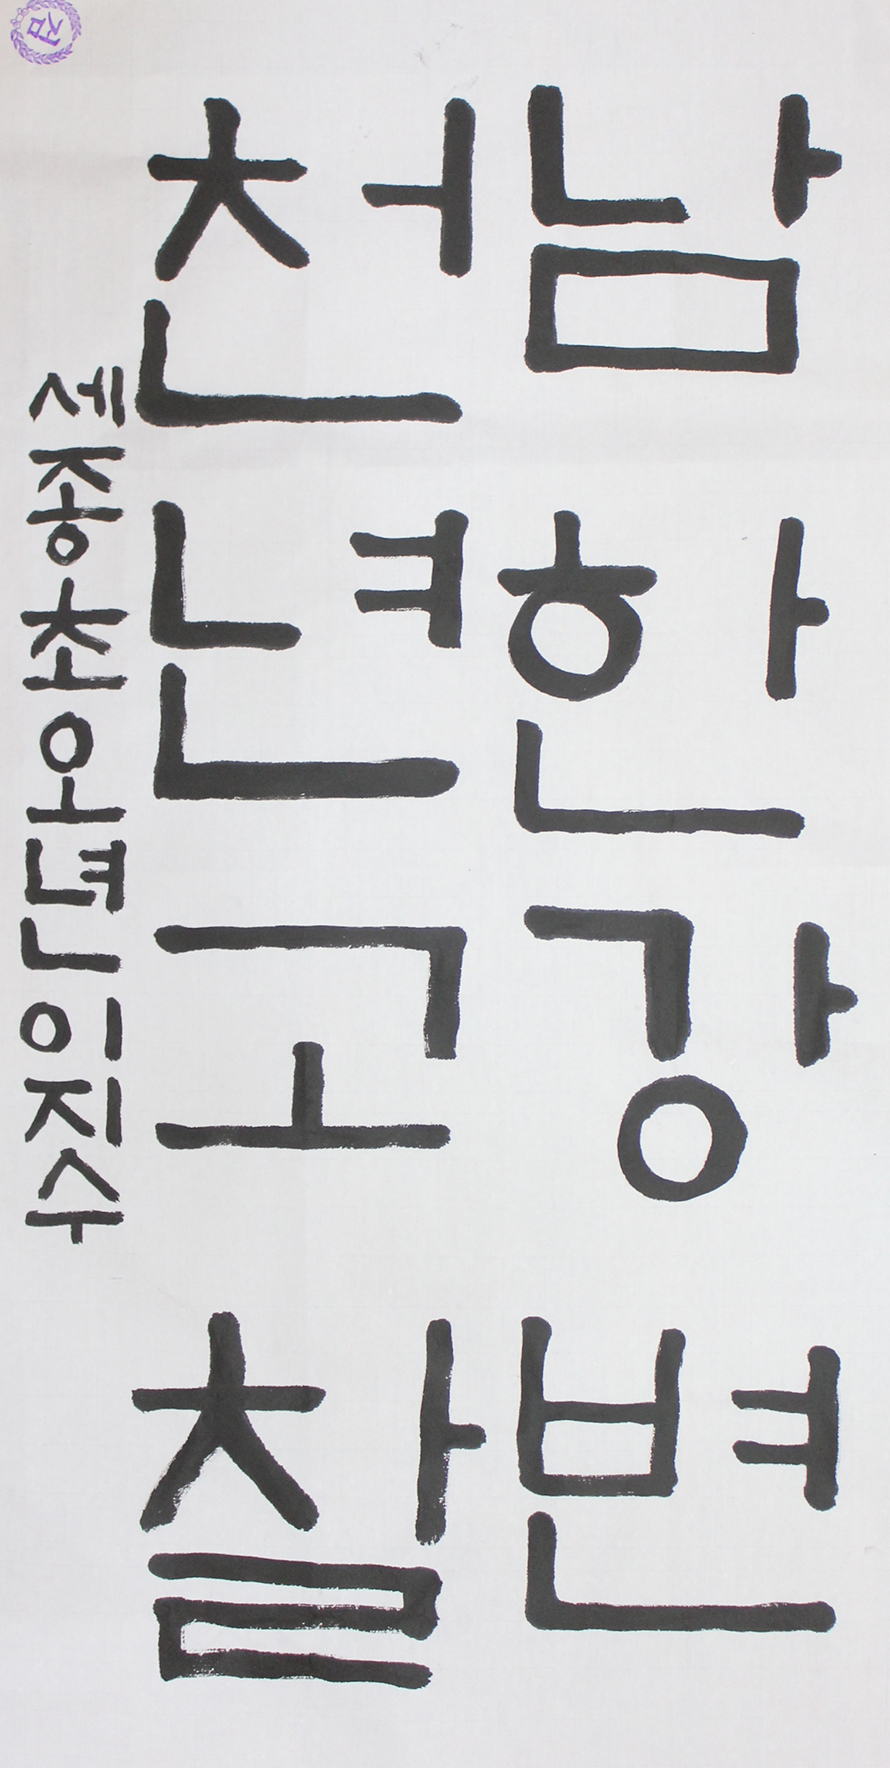 남한강변
천년고찰
세종초오년이지수